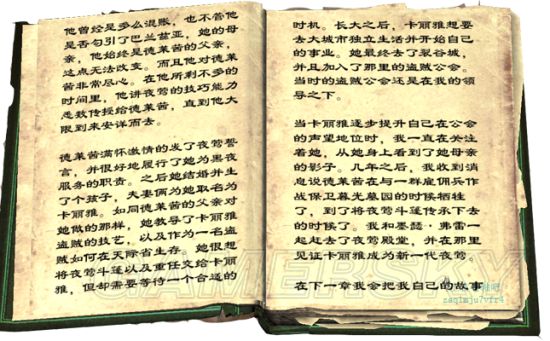 他曾经是多么混账，也不管他
是否勾引了巴兰兹亚，她的母
亲，他始终是德莱茜的父亲，
这点无法改变。而且他对德莱
茜非常尽心。在他所剩不多的
时间里，他讲夜莺的技巧能力
悉数传授给德莱茜，直到他大
限到来安详而去。
德莱茜满怀激情的发了夜莺誓
言，并很好地履行了她为黑夜
服务的职责。之后她结婚并生
了个孩子，夫妻俩为她取名为
卡丽雅。如同德莱茜的父亲对
她做的那样，她教导了卡丽雅
盗贼的技艺，以及作为一名盗
贼如何在天际省生存。她很想
将夜莺斗莲以及重任交给卡丽
雅，但却需要等待一个合适的
时机。长大之后，卡丽雅想要
去大城市独立生活并开始自己
的事业。她最终去了裂谷城，
并且加入了那里的盗贼公会。
当时的盗贼公会还是在我的领
导之下。
当卡丽雅逐步提升自己在公会
的声望地位时，我一直在关注
着她，从她身上看到了她母亲
的影子。几年之后，我收到消
息说德莱茜在与一群雇佣兵作
战保卫暮光墓园的时候牺牲
了，到了将夜莺斗莲传承下去
的时候了。我和墨瑟·弗雷一
起赶去了夜莺殿堂，并在那里
见证卡丽雅成为新一代夜莺
在下一章我会把我自己的故事
GAMERSKY